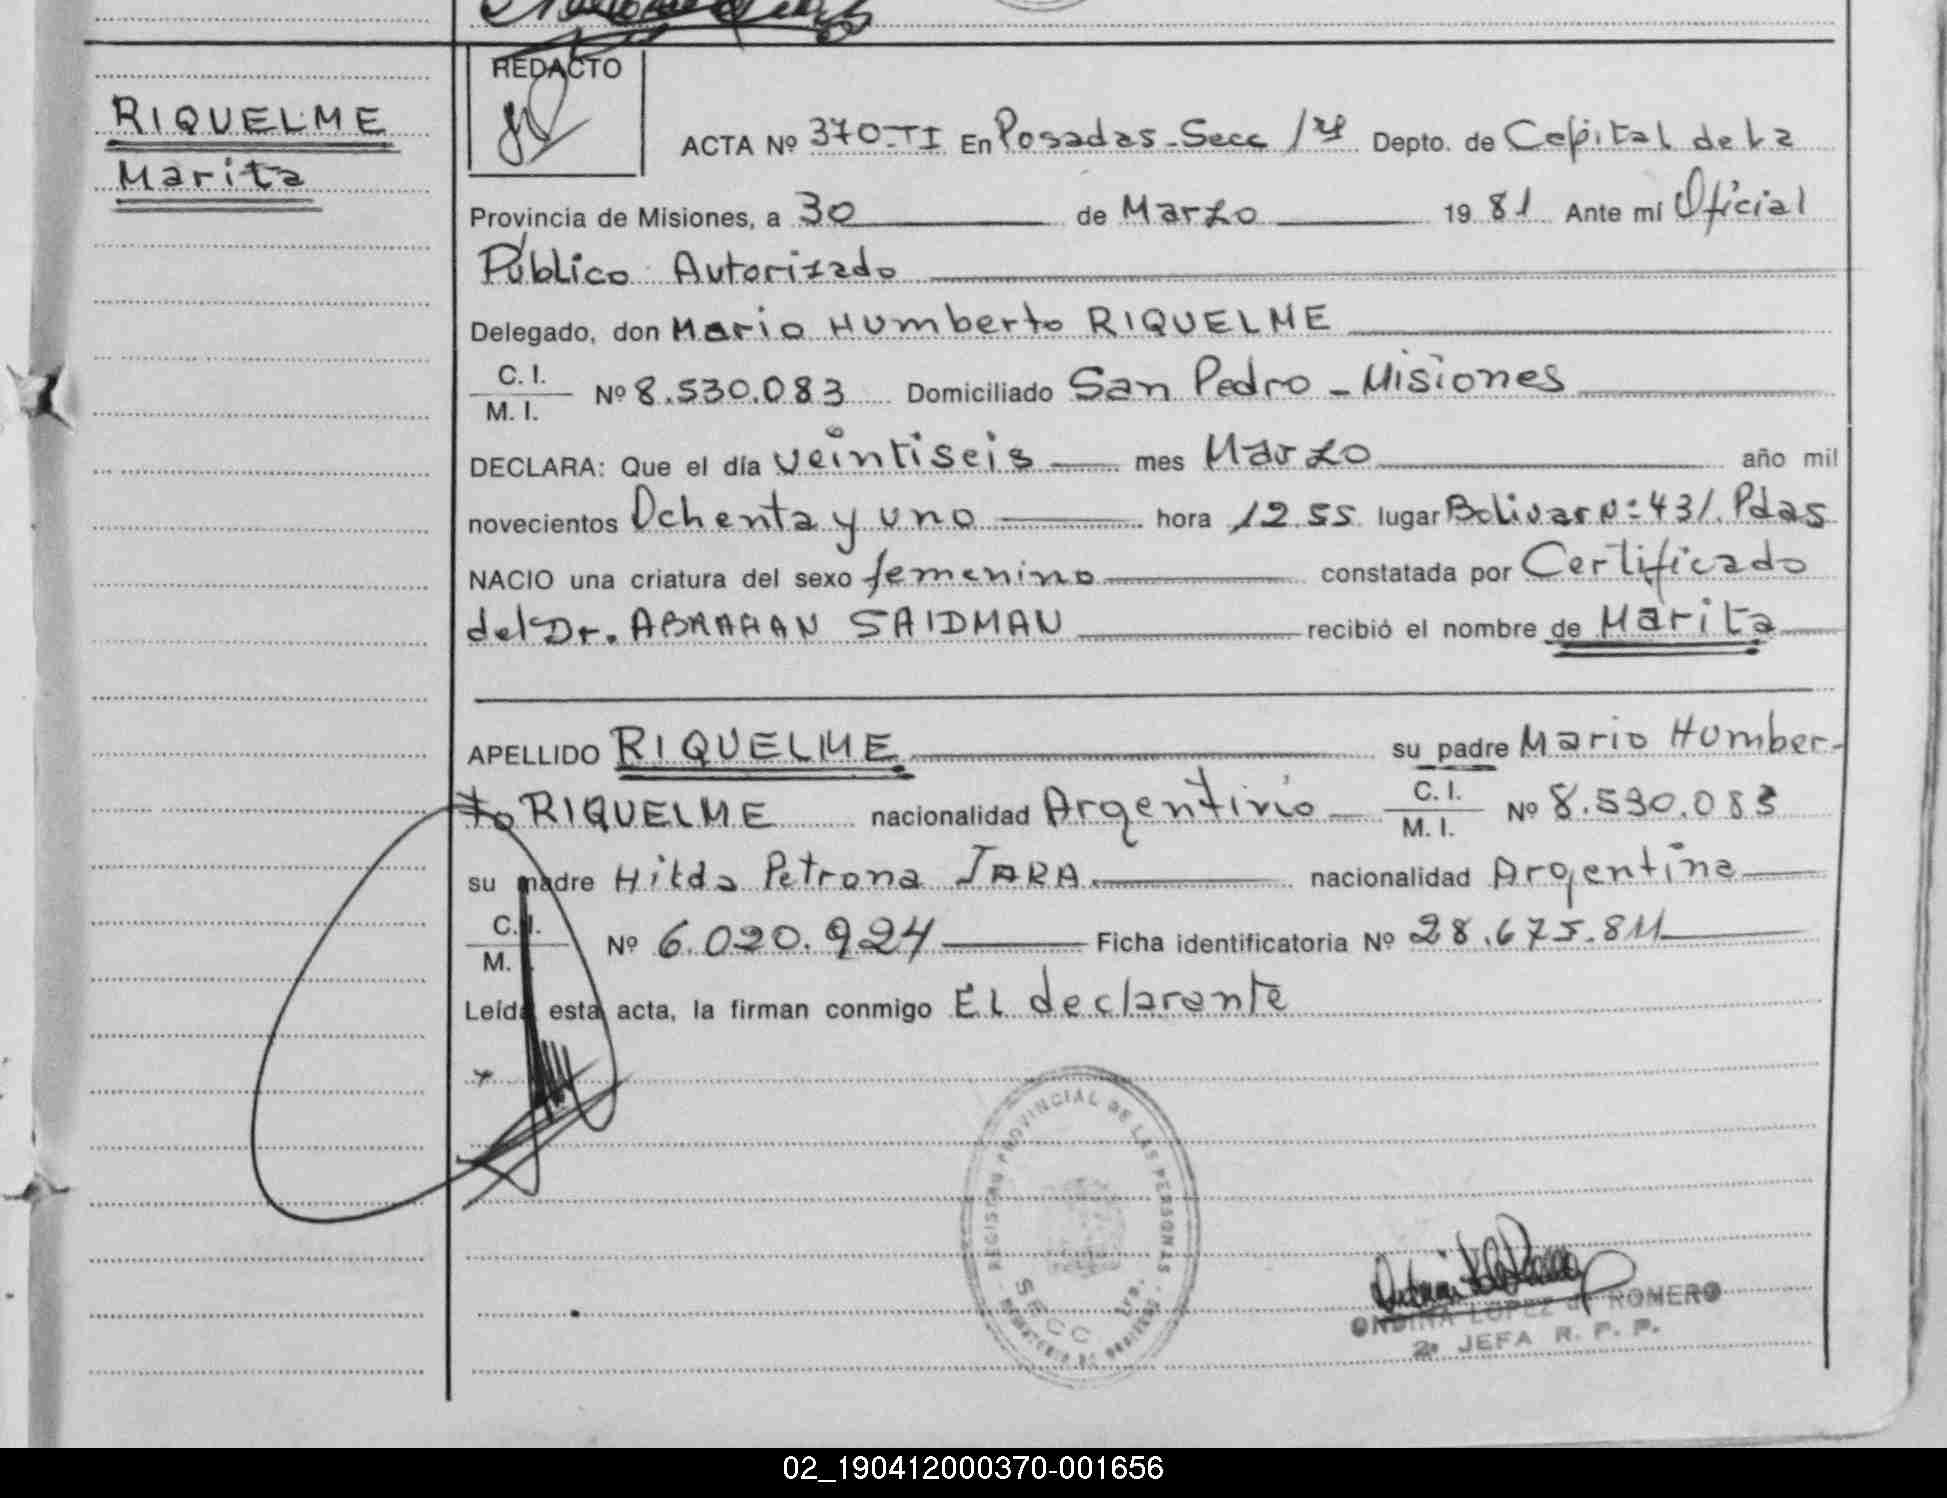 REDACTO
RIQUELME
Marita
ACTA Nº 370-TI En Posadas-Secc 1ra Depto. de Capital de La
Provincia de Misiones, a 30 de Marzo 1981 Ante mí Oficial
Público Autorizado
Delegado, don Mario Humberto RIQUELME
C. I.
M. I. Nº 8.530.083 Domiciliado San Pedro - Misiones
DECLARA: Que el día veintiseis mes Marzo año mil
novecientos Ochenta y uno hora 12.55 lugar Bolivar N=431. Pdas
NACIO una criatura del sexo femenino constatada por Certificado
del Dr. ABRAHAN SAIDMAN recibió el nombre de Marita
APELLIDO RIQUELME su padre Mario Humber-
to RIQUELME nacionalidad Argentino C. I. M. I. Nº 8.530.083
su madre Hilda Petrona JARA. nacionalidad Argentina
C. I. M. Nº 6.020.924 Ficha identificatoria Nº 28.675.811
Leída esta acta, la firman conmigo El declarante
REGISTRO PROVINCIAL DE LAS PERSONAS
SECC 1ra.
ONDINA LOPEZ de ROMERO
2a JEFA R. P. P.
02_190412000370-001656